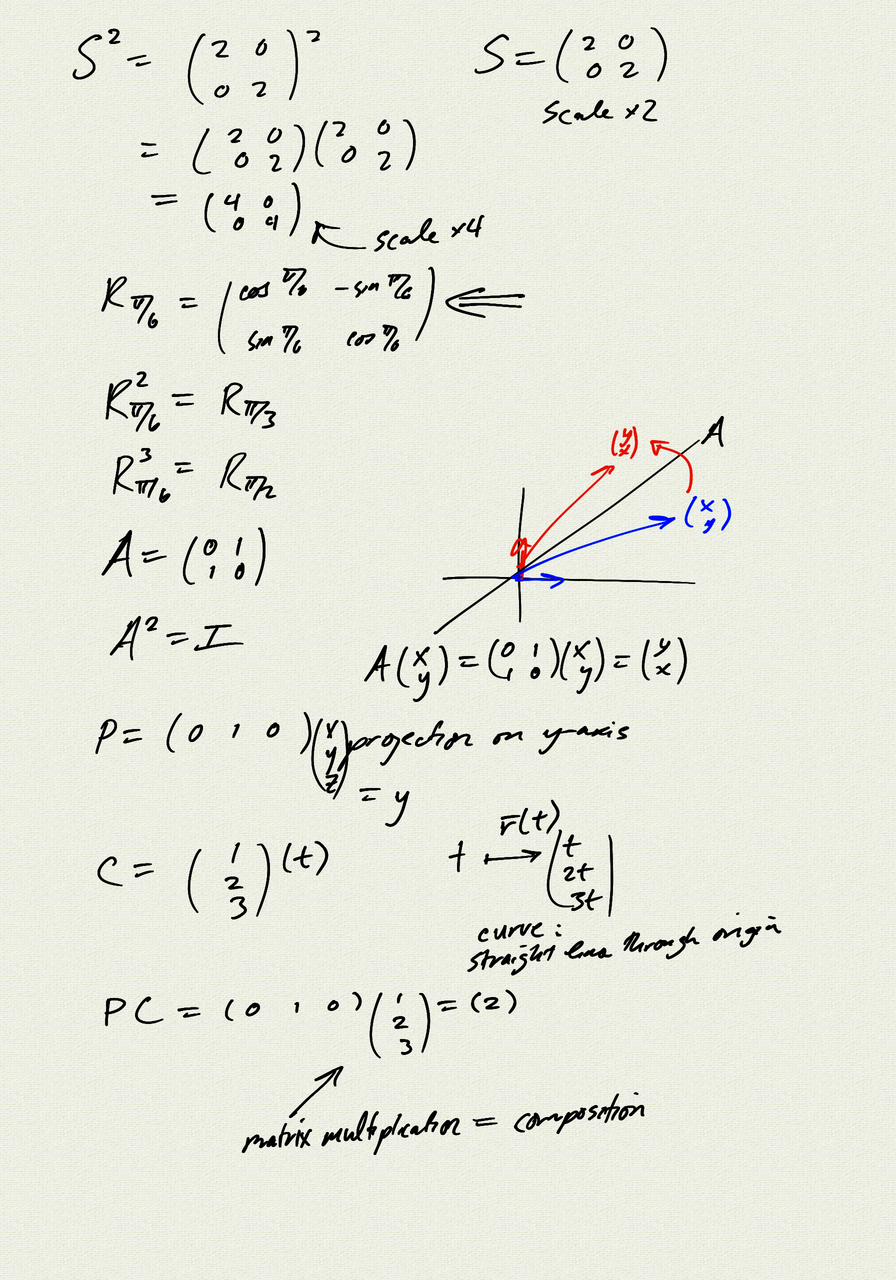 S² = (2 0
0 2)²
S = (2 0
0 2)
scale ×2
= (2 0
0 2)(2 0
0 2)
= (4 0
0 4)
scale ×4
R_{π/6} = (cos π/6 -sin π/6
sin π/6 cos π/6) ⇐
R²_{π/6} = R_{π/3}
R³_{π/6} = R_{π/2}
(y
x)
A
(x
y)
A = (0 1
1 0)
A² = I
A(x
y) = (0 1
1 0)(x
y) = (y
x)
P = (0 1 0)(x
y
z) projection on y-axis
= y
C = (1
2
3)(t)
t ↦ r̄(t) (t
2t
3t)
curve:
straight line through origin
PC = (0 1 0)(1
2
3) = (2)
matrix multiplication = composition